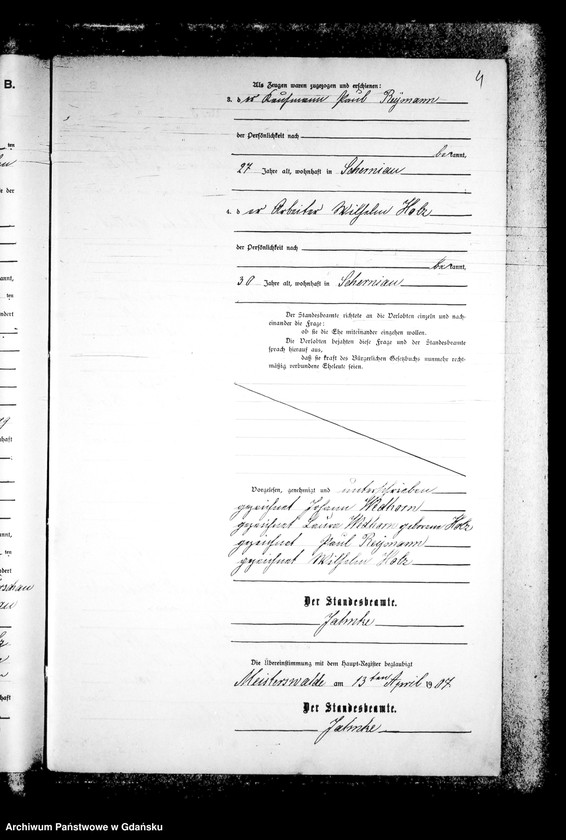 B.
4
Als Zeugen waren zugezogen und erschienen:
3. der Kaufmann Paul Reymann
der Persönlichkeit nach
bekannt,
27 Jahre alt, wohnhaft in Scherniau
4. der Arbeiter Wilhelm Holz
der Persönlichkeit nach
bekannt,
30 Jahre alt, wohnhaft in Scherniau
Der Standesbeamte richtete an die Verlobten einzeln und nach-
einander die Frage:
ob sie die Ehe miteinander eingehen wollen.
Die Verlobten bejahten diese Frage und der Standesbeamte
sprach hierauf aus,
daß sie kraft des Bürgerlichen Gesetzbuchs nunmehr recht-
mäßig verbundene Eheleute seien.
Vorgelesen, genehmigt und unterschrieben
gezeichnet Johann Wedhorn
gezeichnet Laura Wedhorn geborene Holz
gezeichnet Paul Reymann
gezeichnet Wilhelm Holz
Der Standesbeamte.
Jahnke
Die Übereinstimmung mit dem Haupt-Register beglaubigt
Meisterswalde am 13ten April 1907.
Der Standesbeamte.
Jahnke
Archiwum Państwowe w Gdańsku